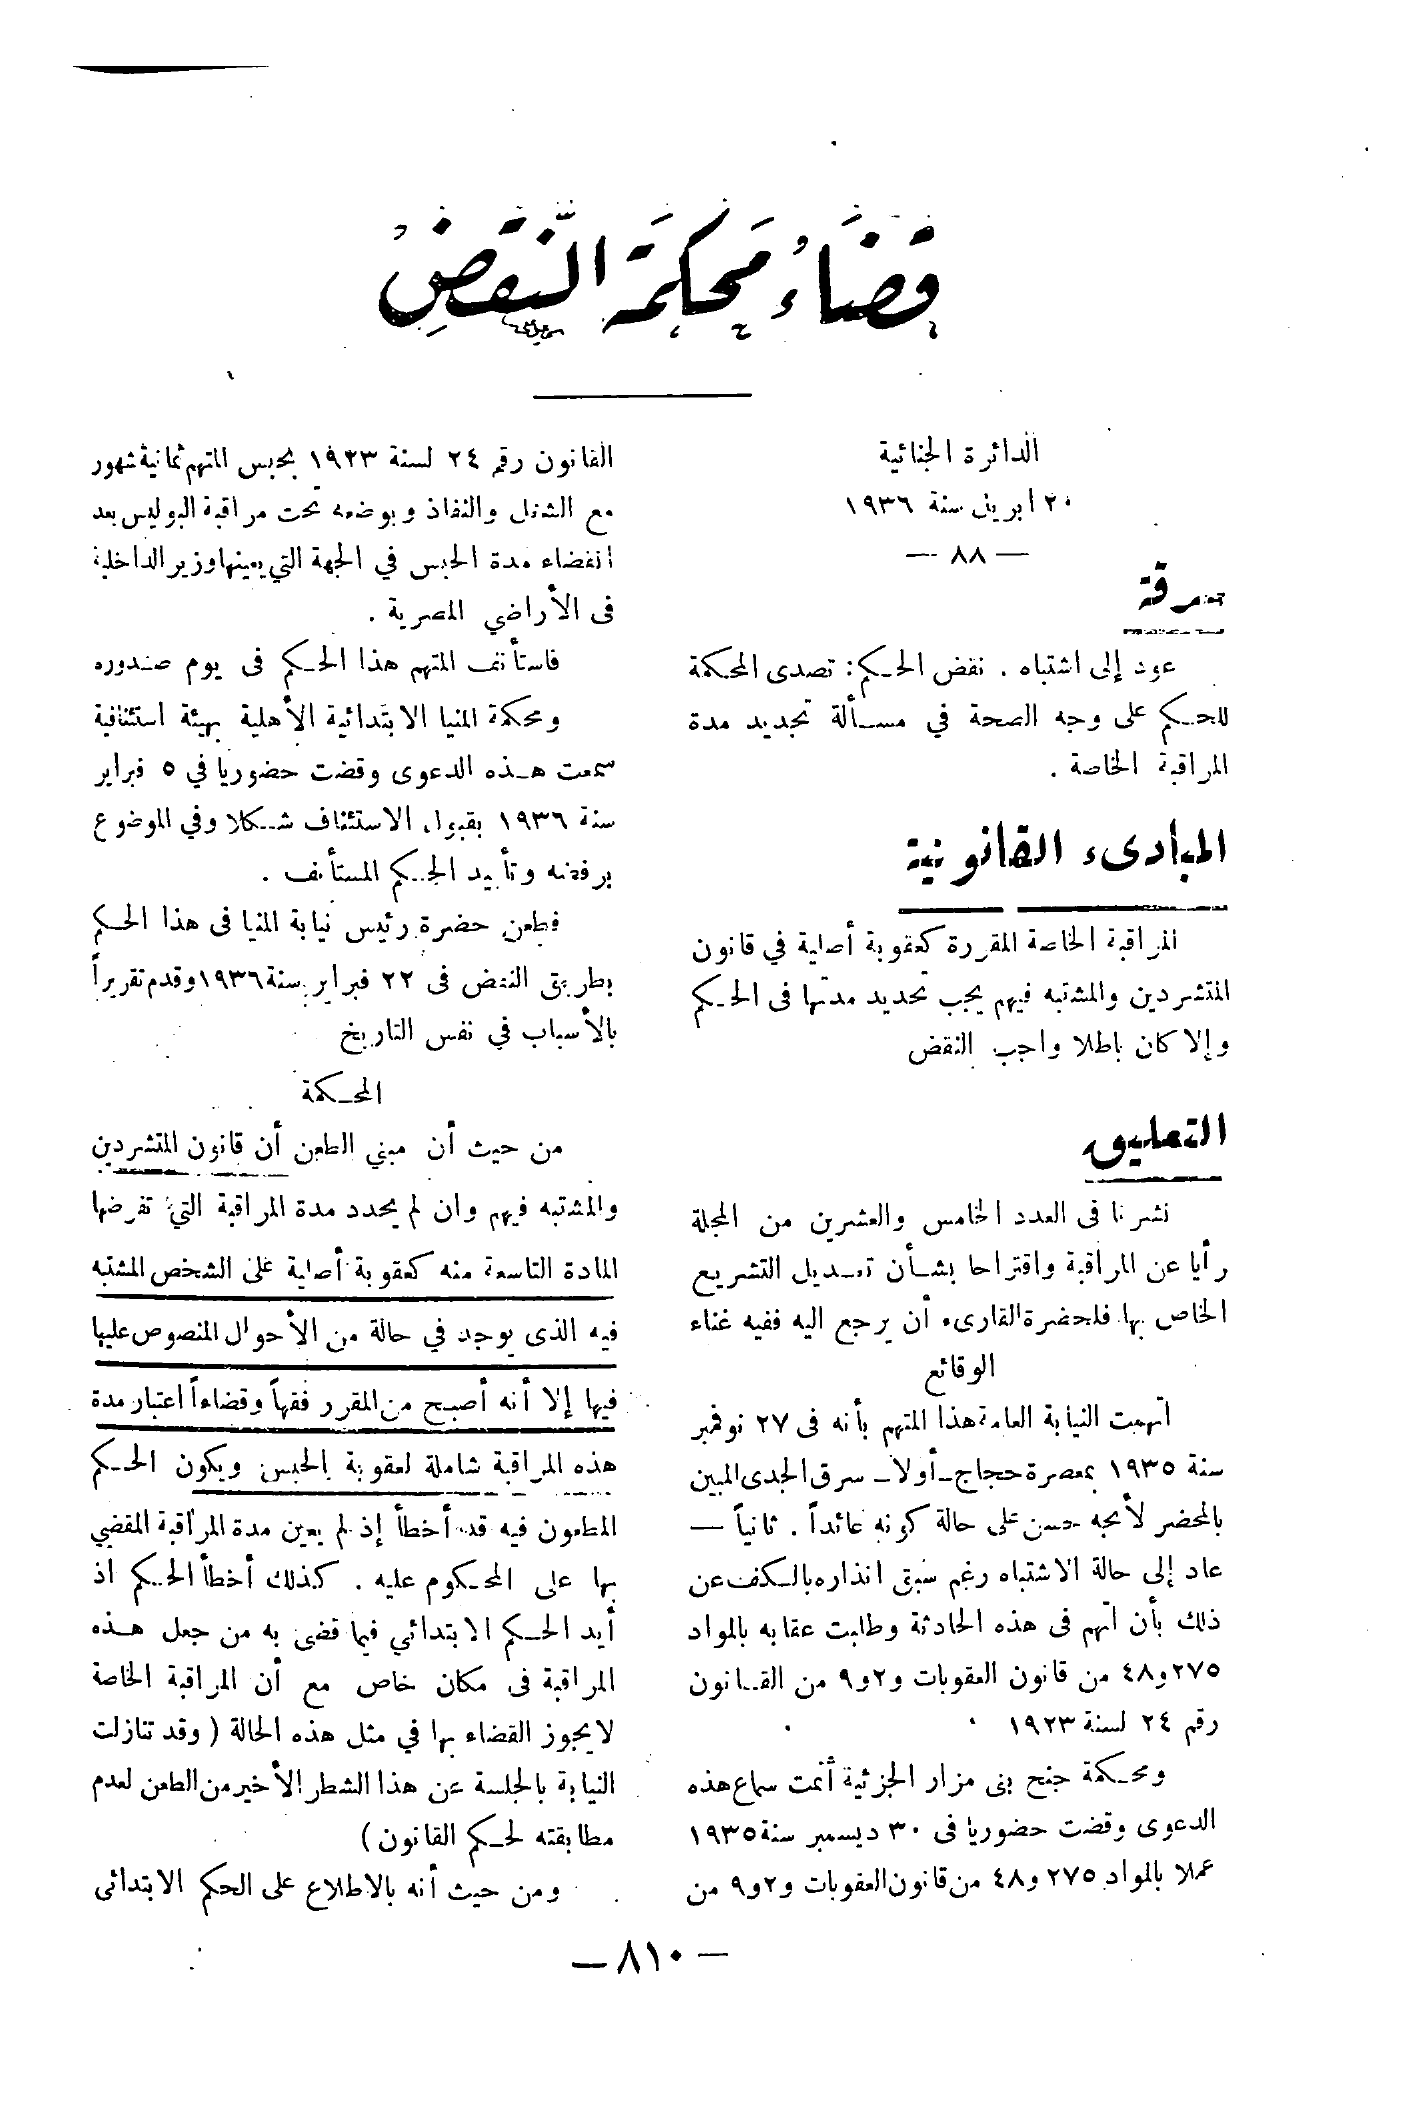 قَضَاءُ مَحكمَة النَّقضِ
الدائرة الجنائية
٢٠ ابريل سنة ١٩٣٦
— ٨٨ —
سرقة
عود إلى اشتباه . نقض الحكم: تصدى المحكمة
للحكم على وجه الصحة في مسألة تجديد مدة
المراقبة الخاصة .
المبادىء القانونية
المراقبة الخاصة المقررة كعقوبة أصلية في قانون
المتشردين والمشتبه فيهم يجب تحديد مدتها فى الحكم
وإلا كان باطلا واجب النقض
التعليق
نشرنا فى العدد الخامس والعشرين من المجلة
رأيا عن المراقبة واقتراحا بشأن تعديل التشريع
الخاص بها فلحضرة القارىء أن يرجع اليه ففيه غناء
الوقائع
اتهمت النيابة العامة هذا المتهم بأنه فى ٢٧ نوفمبر
سنة ١٩٣٥ بمعصرة حجاج - أولا - سرق الجدى المبين
بالمحضر لأبحه حسن على حالة كونه عائداً . ثانياً —
عاد إلى حالة الاشتباه رغم سبق انذاره بالكف عن
ذلك بأن اتهم فى هذه الحادثة وطلبت عقابه بالمواد
٢٧٥ و٤٨ من قانون العقوبات و٢و٩ من القانون
رقم ٢٤ لسنة ١٩٢٣ .
ومحكمة جنح بنى مزار الجزئية أتمت سماع هذه
الدعوى وقضت حضوريا فى ٣٠ ديسمبر سنة ١٩٣٥
عملا بالمواد ٢٧٥ و٤٨ من قانون العقوبات و٢و٩ من
القانون رقم ٢٤ لسنة ١٩٢٣ بحبس المتهم ثمانية شهور
مع الشغل والنفاذ وبوضعه تحت مراقبة البوليس بعد
انقضاء مدة الحبس في الجهة التي يعينها وزير الداخلية
فى الأراضي المصرية .
فاستأنف المتهم هذا الحكم فى يوم صدوره
ومحكمة المنيا الابتدائية الأهلية بهيئة استئنافية
سمعت هذه الدعوى وقضت حضوريا في ٥ فبراير
سنة ١٩٣٦ بقبول الاستئناف شكلا وفي الموضوع
برفضه وتأييد الحكم المستأنف .
فطعن حضرة رئيس نيابة المنيا فى هذا الحكم
بطريق النقض فى ٢٢ فبراير سنة ١٩٣٦ وقدم تقريراً
بالأسباب في نفس التاريخ
المحكمة
من حيث أن مبني الطعن أن قانون المتشردين
والمشتبه فيهم وان لم يحدد مدة المراقبة التي تفرضها
المادة التاسعة منه كعقوبة أصلية على الشخص المشتبه
فيه الذى يوجد في حالة من الأحوال المنصوص عليها
فيها إلا أنه أصبح من المقرر فقهاً وقضاءاً اعتبار مدة
هذه المراقبة شاملة لعقوبة الحبس ويكون الحكم
المطعون فيه قد أخطأ إذ لم يعين مدة المراقبة المقضي
بها على المحكوم عليه . كذلك أخطأ الحكم اذ
أيد الحكم الابتدائي فيما قضى به من جعل هذه
المراقبة فى مكان خاص مع أن المراقبة الخاصة
لا يجوز القضاء بها في مثل هذه الحالة ( وقد تنازلت
النيابة بالجلسة عن هذا الشطر الأخير من الطعن لعدم
مطابقته لحكم القانون )
ومن حيث أنه بالاطلاع على الحكم الابتدائى
— ٨١٠ —